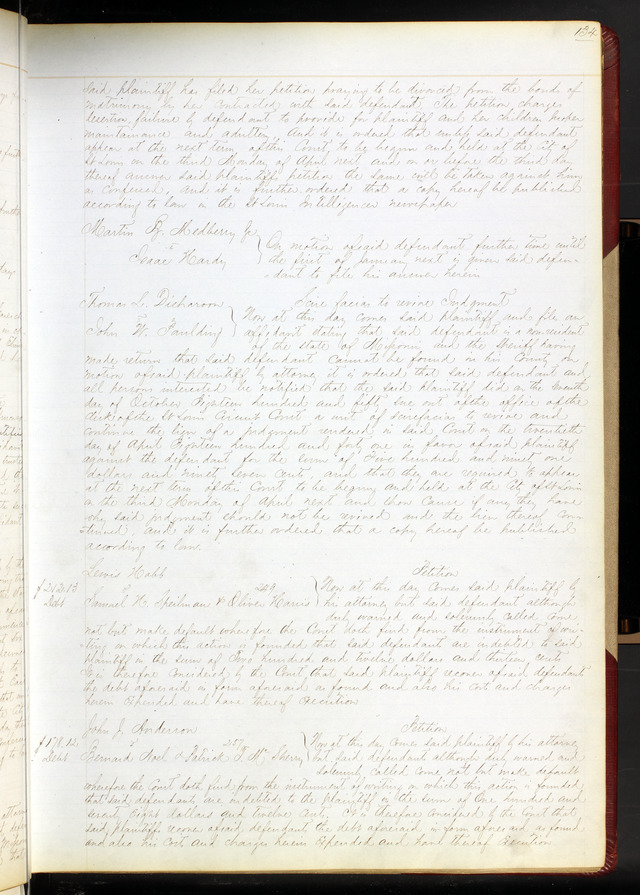 134
said plaintiff has filed her petition praying to be divorced from the bonds of
matrimony by her contracted with said defendant. The petition charges
desertion, failure by defendant to provide for plaintiff and her children proper
maintainance and adultery. And it is ordered that unless said defendant
appear at the next term of this Court to be begun and held at the City of
St Louis on the third Monday of April next and on or before the third day
thereof answer said plaintiffs petition the same will be taken against him
as confessed, and it is further ordered that a copy hereof be published
according to law in the St Louis Intelligencer newspaper
Martin R. Medberry Jr
vs
Isaac Hardy
On motion of said defendant further time until
the first of January next is given said defen-
-dant to file his answer herein
Thomas L. Disharoon
vs
John W. Paulding
Scire facias to revive Judgment
Now at this day comes said Plaintiff and files an
affidavit stating that said defendant is a non resident
of the state of Missouri and the Sheriff having
made return that said defendant cannot be found in his County, on
motion of said plaintiff by attorney it is ordered that said defendant and
all persons interested be notified that the said plaintiff did on the
day of October Eighteen hundred and fifty sue out of the office of the
Clerk of the St Louis Circuit Court a writ of scire facias to revive and
continue the lien of a judgment rendered in said Court on the twentieth
day of April Eighteen hundred and forty one in favor of said plaintiff
against the defendant for the sum of Five hundred and ninety one
dollars and ninety seven cents and that they are required to appear
at the next term of this Court to be begun and held at the City of St Louis
on the third Monday of April next and show cause if any they have
why said judgment should not be revived and the lien thereof con-
-tinued. And it is further ordered that a copy hereof be published
according to law.
Lewis Habb
vs 249
Samuel H. Speilman & Oliver Harris
$212.13
Debt
Petition
Now at this day comes said plaintiff by
his attorney but said defendant although
duly warned and solemnly called come
not but make default wherefore the Court doth find from the instrument of wri-
-ting on which this action is founded that said defendants are indebted to said
plaintiff in the sum of Two hundred and twelve dollars and thirteen cents
It is therefore considered by the Court that said plaintiff recover of said defendant
the debt aforesaid in form aforesaid as found and also his costs and charges
herein expended and have thereof execution
John J. Anderson
vs 257
Bernard Noel & Patrick T. McSherry
$178.12
Debt
Petition
Now at this day comes said plaintiff by his attorney
but said defendants although duly warned and
solemnly called come not but make default
wherefore the Court doth find from the instrument of writing on which this action is founded
that said defendants are indebted to the plaintiff in the sum of One hundred and
seventy eight dollars and twelve cents. It is therefore considered by the Court that
said plaintiff recover of said defendants the debt aforesaid in form aforesaid as found
and also his costs and charges herein expended and have thereof execution